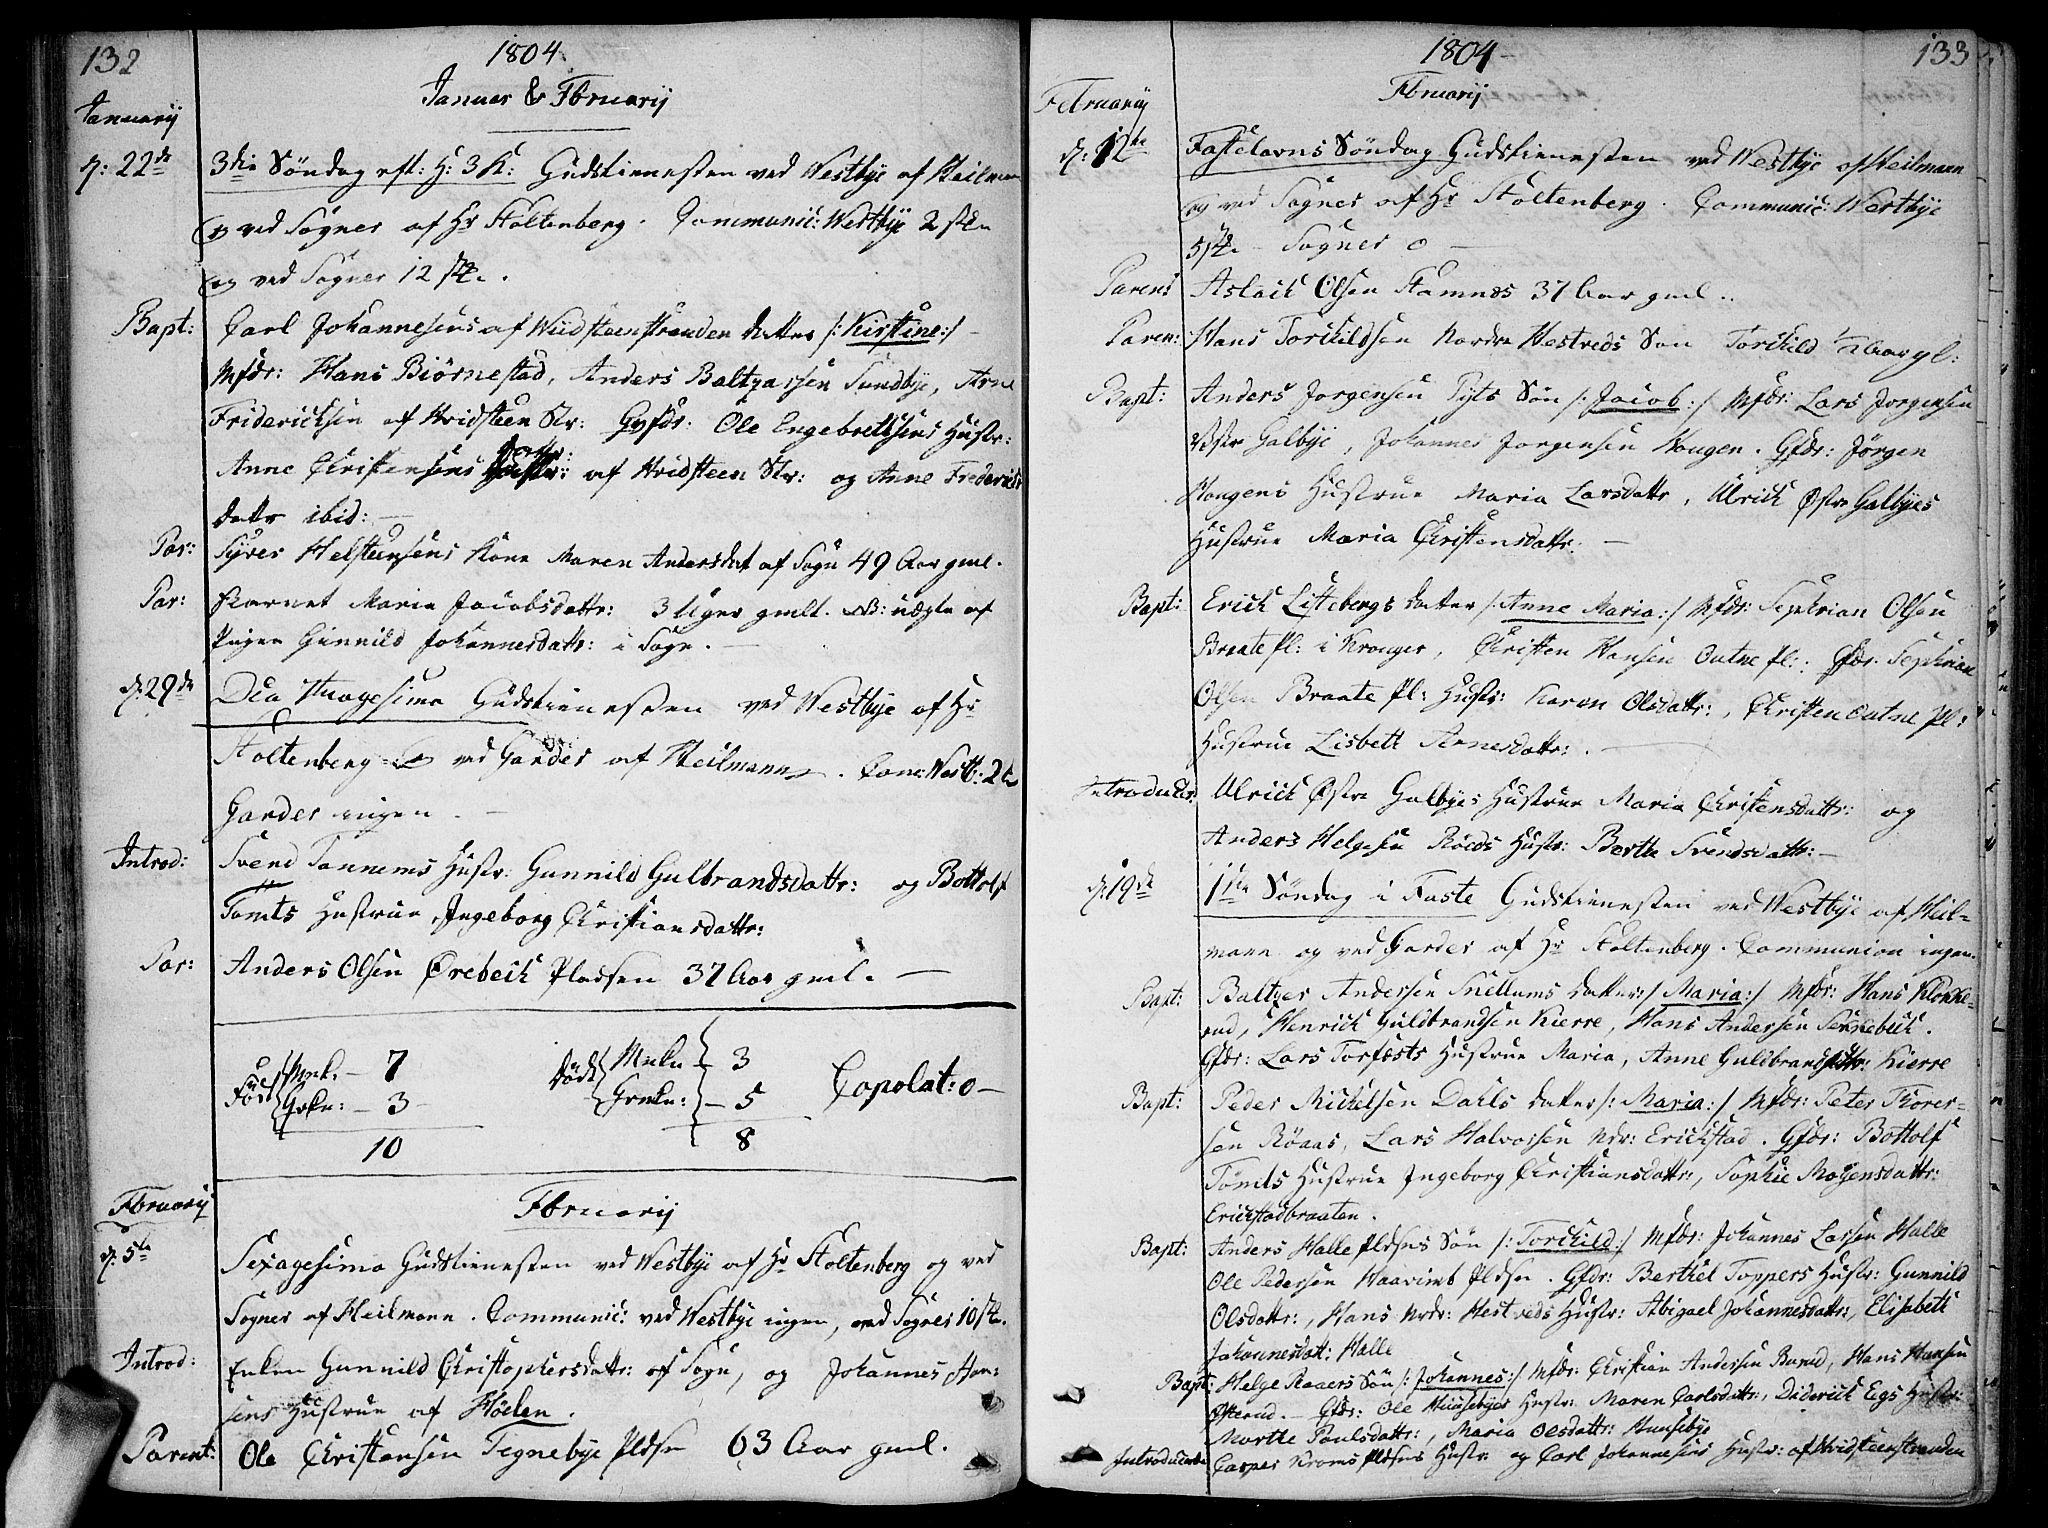 132
1804
Januar & Fbruarij
Januarij
d: 22de
3die Söndag eft: H: 3 K: Gudstienesten ved Westbye af Heilman
og ved Sogner af Hr Stoltenberg. Communic: Westbye 2 stk
og ved Sogner 12 stk.
Bapt: Carl Johannesens af Hvidsteenstranden datter /: Kirstine :/
Mfdr: Hans Biörnestad, Anders Baltzarsen Sundbye, Arne
Fridericksen af Hvidsteen Str: Gvfdr: Ole Engebretsens Hustr:
Anne Christensens Dattr: af Hvidsteen Str: og Anne Frederichs
dattr ibid:
Par: Syver Helsteensens Kone Maren Andersdat af Sogn 49 Aar gml.
Par: Barnet Maria Jacobsdattr: 3 Uger gmlt. NB: uægte af
Pigen Gunnild Johannesdattr: i Sogn.
d. 29de
Dca Septuagesima Gudstienesten ved Westbye af Hr
Stoltenberg og ved Garder af Heilmann. Com: Westb: 2
Garder ingen.
Introd: Svend Tannums Hustr: Gunnild Gulbrandsdattr: og Bottolf
Tomts Hustrue Ingeborg Christiansdattr:
Par: Anders Olsen Örebeck Pladsen 37 Aar gml.
Föd Mnk. 7
Qvkn: 3
10
Död Mnkn 3
Qvnkn: 5
8
Copolat: 0
Fbruarij
Fbruarij
d. 5te
Sexagesima Gudstienesten ved Westbye af Hr Stoltenberg og ved
Sogner af Heilmann. Communic: ved Westbye ingen, ved Sogner 10 stk.
Introd: Enken Gunnild Christophersdattr: af Sogn, og Johannes Han-
sens Hustrue af Höelen.
Parent: Ole Christensen Tegnebye Pldsn 63 Aar gml.
1804
133
Fbruarij
Februarij
d: 12te
Fastelavns Söndag Gudstienesten ved Westbye af Heilmann
og ved Sogner af Hr Stoltenberg. Communic: Westbye
5 stk. Sogner 0
Paren: Aslack Olsen Stamnes 37 Aar gml.
Paren: Hans Torchildsen Nordre Hestveds Son Torchild 1/2 Aar gl:
Bapt: Anders Jorgensen Pyts Sön /: Jacob :/ Mfdr: Lars Jorgensen
Vestr Galbye, Johannes Jorgensen Hougen. Qfdr: Jörgen
Hougens Hustrue Maria Larsdattr, Ulrich Østre Galbyes
Hustrue Maria Christensdattr.
Bapt: Erich Littebergs datter /: Anne Maria :/ Mfdr: Sephrian Olsen
Braate Pl: i Kroger, Christen Hansen Outne Pl: Qfdr: Sephrian
Olsen Braate Pl: Hustr: Karen Olsdattr:, Christen Outne Pl:
Hustrue Lisbett Arnesdattr:
Introducer: Ulrich Østre Galbyes Hustrue Maria Christensdattr: og
Anders Helgesen Röeds Hustr: Berthe Svendsdattr:
d: 19de
1ste Söndag i Faste Gudstienesten ved Westbye af Heil-
mann og ved Garder af Hr Stoltenberg. Communion ingen.
Bapt: Baltzer Andersen Snellums datter /: Maria :/ Mfdr: Hans Klokke-
rud, Henrich Guldbrandsen Kierre, Hans Andersen Sennebeck.
Qfdr: Lars Torfæsts Hustrue Maria, Anne Guldbrandsdttr: Kierre
Bapt: Peder Michelsen Dahls datter /: Maria :/ Mfdr: Peter Thorer-
sen Röaas, Lars Halvorsen Ndr: Erichstad. Qfdr: Bottolf
Tömts Hustrue Ingeborg Christiansdattr:, Sophie Mogensdattr:
Erichstadbraaten.
Bapt: Anders Halle Pldsns Sön /: Torchild :/ Mfdr: Johannes Larsen Halle
Ole Pedersen Haavimb Pldsn. Qfdr: Berthel Toppers Hustr: Gunnild
Olsdattr:, Hans Nrdr: Hestveds Hustr: Abigael Johannesdattr:, Elisabeth
Johannesdatt: Halle
Bapt: Helge Raaers Sön /: Johannes :/ Mfdr: Christian Andersen Barud, Hans Hansen
Østerud. Qfdr: Ole Hunsebyes Hustr: Maren Carlsdattr:, Diderich Egs Hustr:
Marthe Poulsdattr:, Maria Olsdattr: Hunsebye
Introducerte Casper Kroms Pldsns Hustr: og Carl Johannesens Hustr: af Hvidsteenstranden